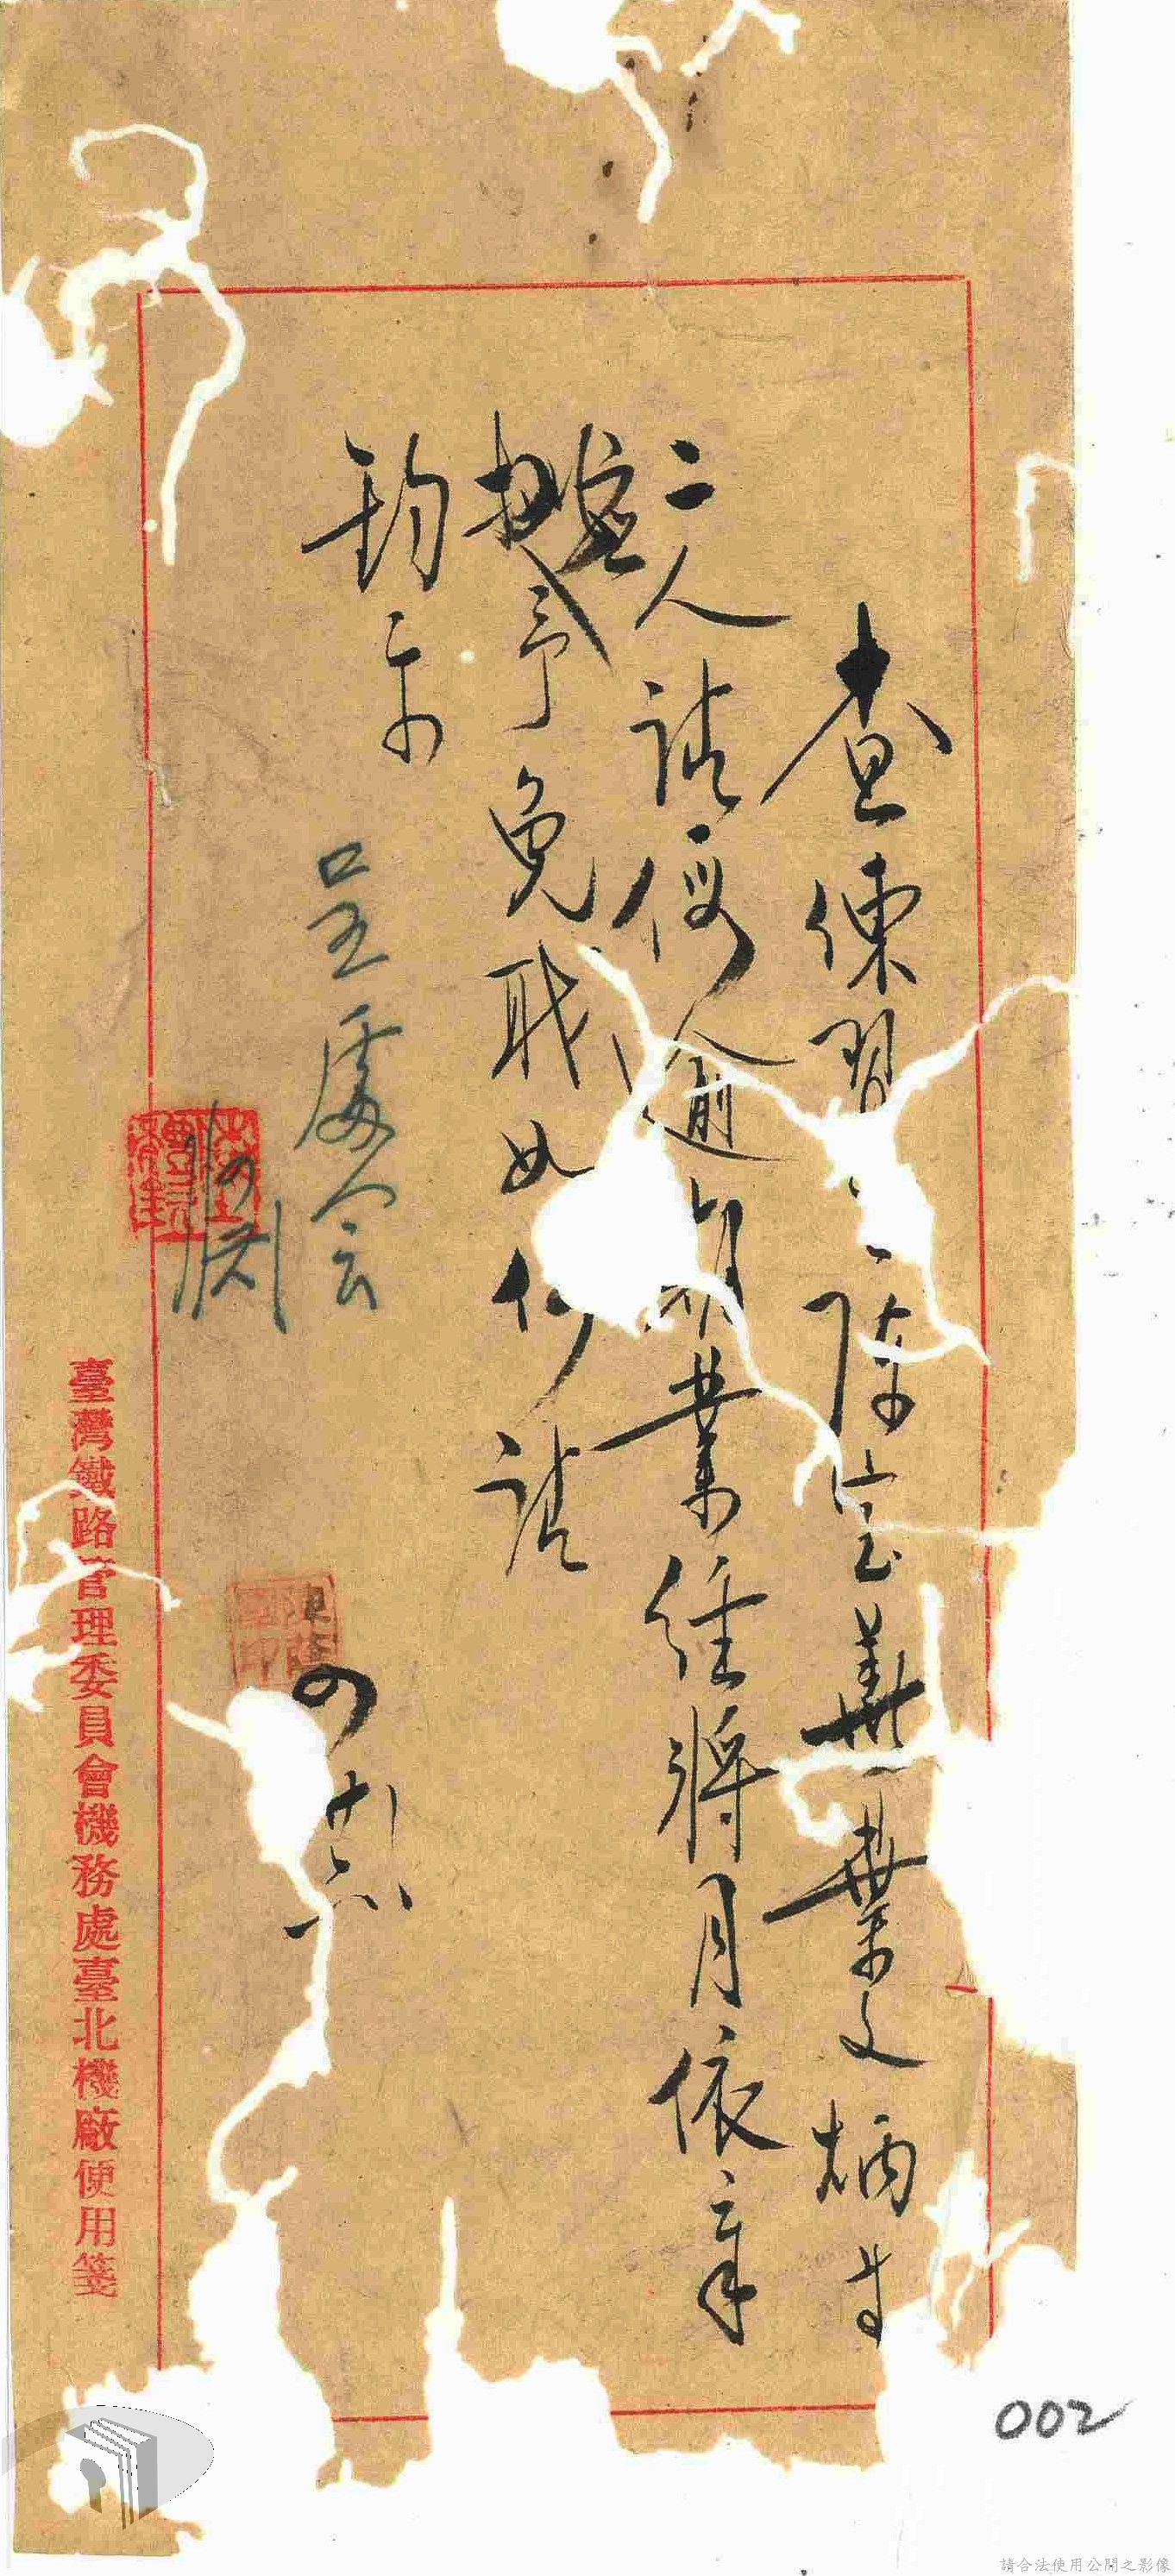 查練習
陳宝華葉文炳等
二人請假逾期業經將月依章
應
擬予免職如何請
鈞示
四 廿六
呈處会
臺灣鐵路管理委員會機務處臺北機廠便用箋
002
請合法使用公開之影像